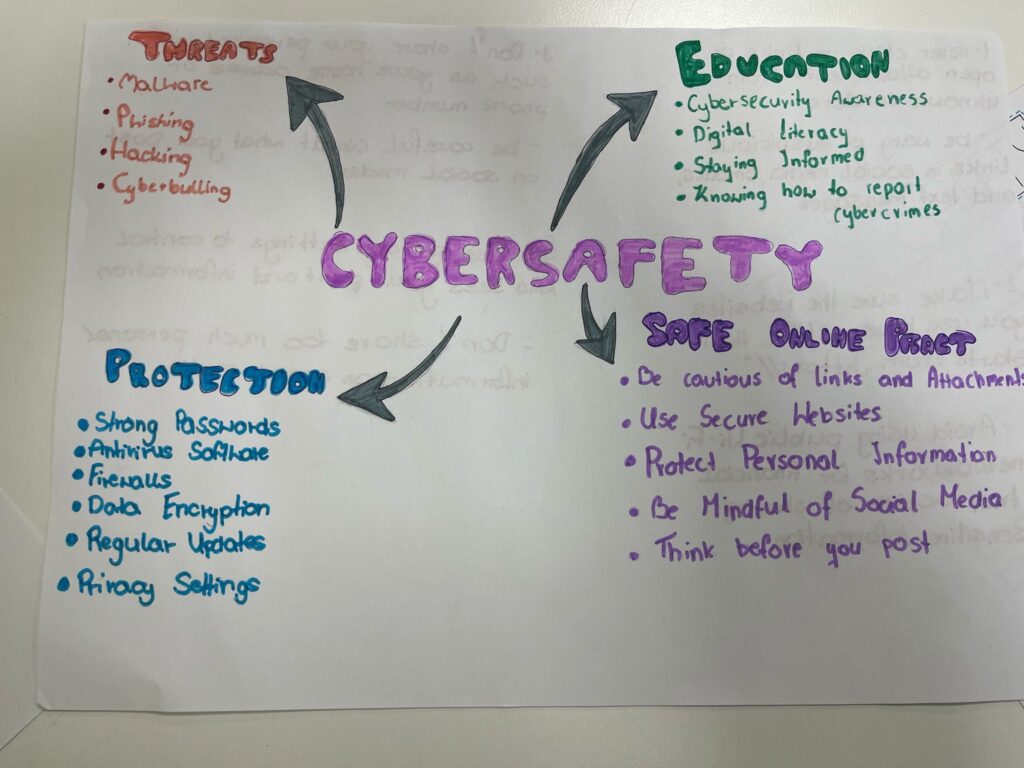 THREATS
• Malware
• Phishing
• Hacking
• Cyberbulling
EDUCATION
• Cybersecurity Awareness
• Digital literacy
• Staying Informed
• Knowing how to report
cybercrimes
CYBERSAFETY
PROTECTION
• Strong Passwords
• Antivirus Software
• Firewalls
• Data Encryption
• Regular Updates
• Privacy Settings
SAFE ONLINE PRACT
• Be cautious of links and Attachments
• Use Secure Websites
• Protect Personal Information
• Be Mindful of Social Media
• Think before you post